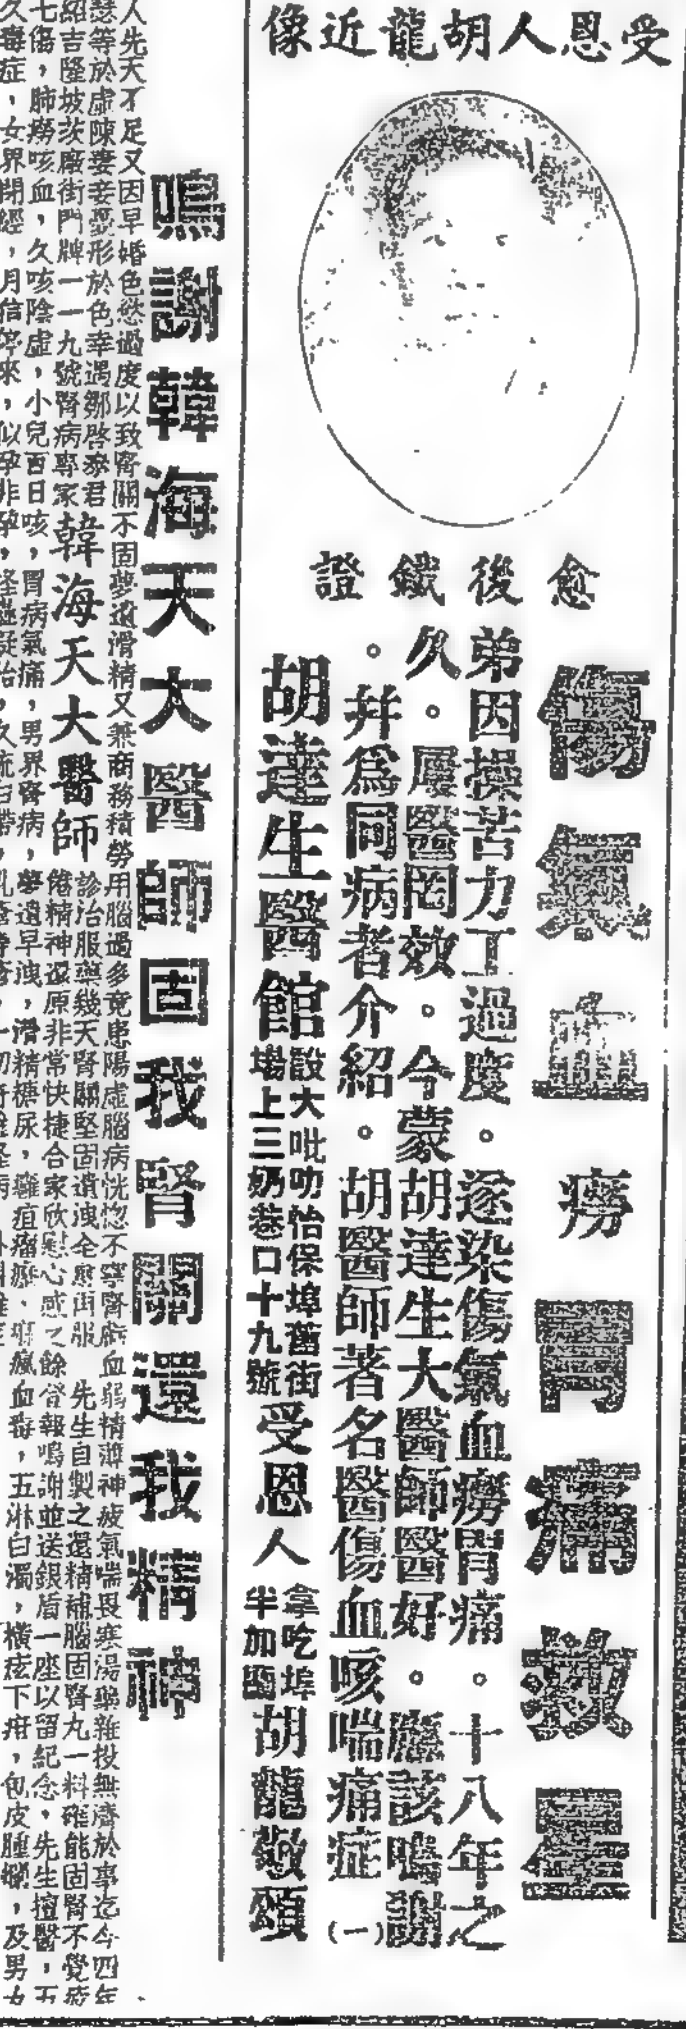 受恩人胡龍近像
愈後鐵證
傷氣血癆胃痛救星
弟因操苦力工過度。遂染傷氣血癆胃痛。十八年之
久。屢醫罔效。今蒙胡達生大醫師醫好。應該鳴謝
。并為同病者介紹。胡醫師著名醫傷血咳喘痛症(一)
胡達生醫館
設大吡叻怡保埠舊街
場上三奶巷口十九號
受恩人
拿吃埠
半加
胡龍敬頌
鳴謝韓海天大醫師固我腎關還我精神
人先天不足又因早婚色慾過度以致腎關不固夢遺滑精又兼商務積勞用腦過多竟患陽虛腦病恍惚不寧腎病血弱精薄神疲氣喘畏寒湯藥雜投無濟於事迄今四年
瑟等於虛陳妻妾憂形於色幸遇鄒啓泰君診治服藥幾天腎關堅固遺洩全愈再服先生自製之還精補腦固腎丸一料確能固腎不覺疲
紹吉隆坡茨廠街門牌一一九號腎病專家韓海天大醫師倦精神還原非常快捷合家欣慰心感之餘登報鳴謝並送銀盾一座以留紀念,先生擅醫,五
七傷,肺癆咳血,久咳陰虛,小兒百日咳,胃病氣痛,男界腎病,夢遺早洩,滑精糖尿,癰疽瘤癧,痳瘋血毒,五淋白濁,橫痃下疳,包皮腫爛,及男女
久毒症,女界閉經,月信停來,似孕非孕,